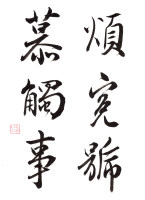 煩冤號
慕觸事